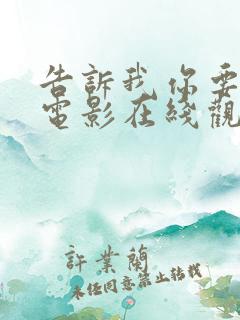 告訴我你要
電影在綫觀
許業蘭
未经同意禁止转载